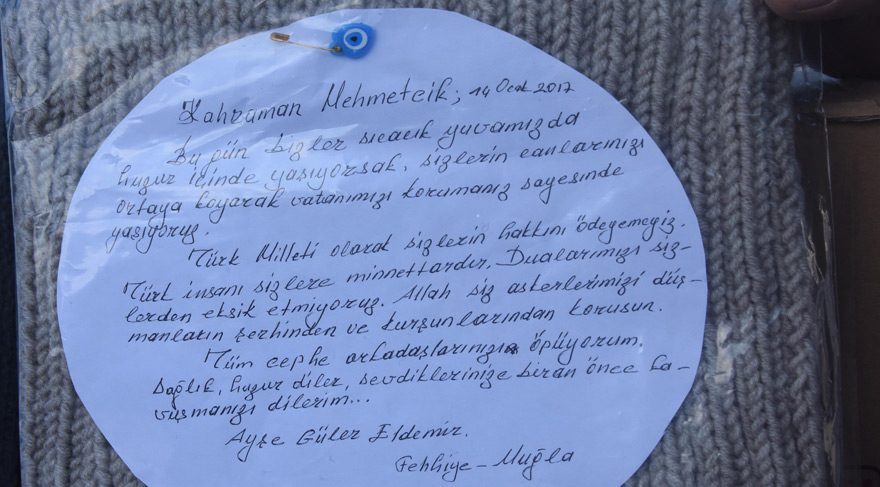 Kahraman Mehmetcik; 14 Ocak 2017
Bu gün bizler sıcacık yuvamızda
huzur içinde yaşıyorsak, sizlerin canlarınızı
ortaya koyarak vatanımızı korumanız sayesinde
yaşıyoruz.
Türk Milleti olarak sizlerin hakkını ödeyemeyiz.
Türk insanı sizlere minnettardır. Dualarımızı siz-
lerden eksik etmiyoruz. Allah siz askerlerimizi düş-
manların şerhinden ve kurşunlarından korusun.
Tüm cephe arkadaşlarınızı öpüyorum.
Sağlık, huzur diler, sevdiklerinize biran önce ka-
vuşmanızı dilerim...
Ayşe Güler Eldemir.
Fethiye - Muğla